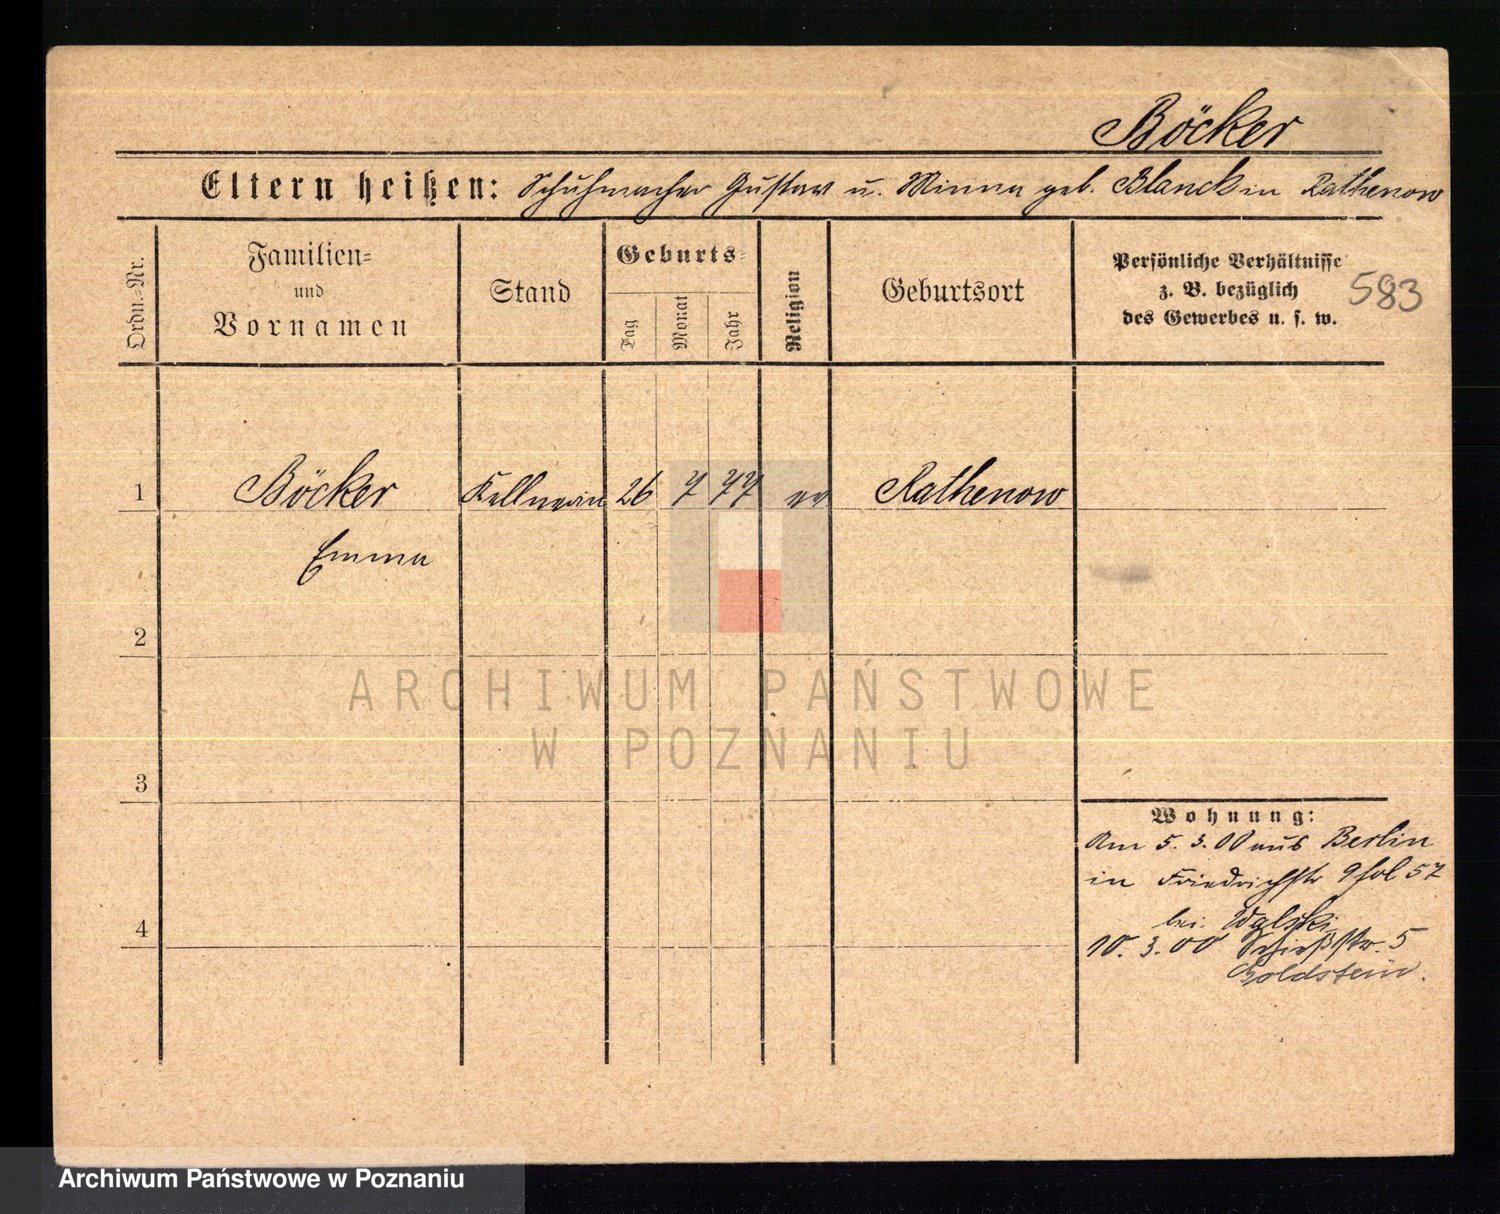 Böcker
Eltern heißen: Schuhmacher Gustav u. Minna geb. Blanck in Rathenow
Ordn.-Nr.
Familien-
und
Vornamen
Stand
Geburts-
Tag
Monat
Jahr
Religion
Geburtsort
Persönliche Verhältnisse
z. B. bezüglich
des Gewerbes u. s. w.
583
1 Böcker Kellnerin 26 7 77 ev Rathenow
Emma
2
ARCHIWUM PAŃSTWOWE
W POZNANIU
3
Wohnung:
Am 5. 3. 00 aus Berlin
in Friedrichstr 57
bei
4
10. 3. 00 Schießstr. 5
Goldstein.
Archiwum Państwowe w Poznaniu